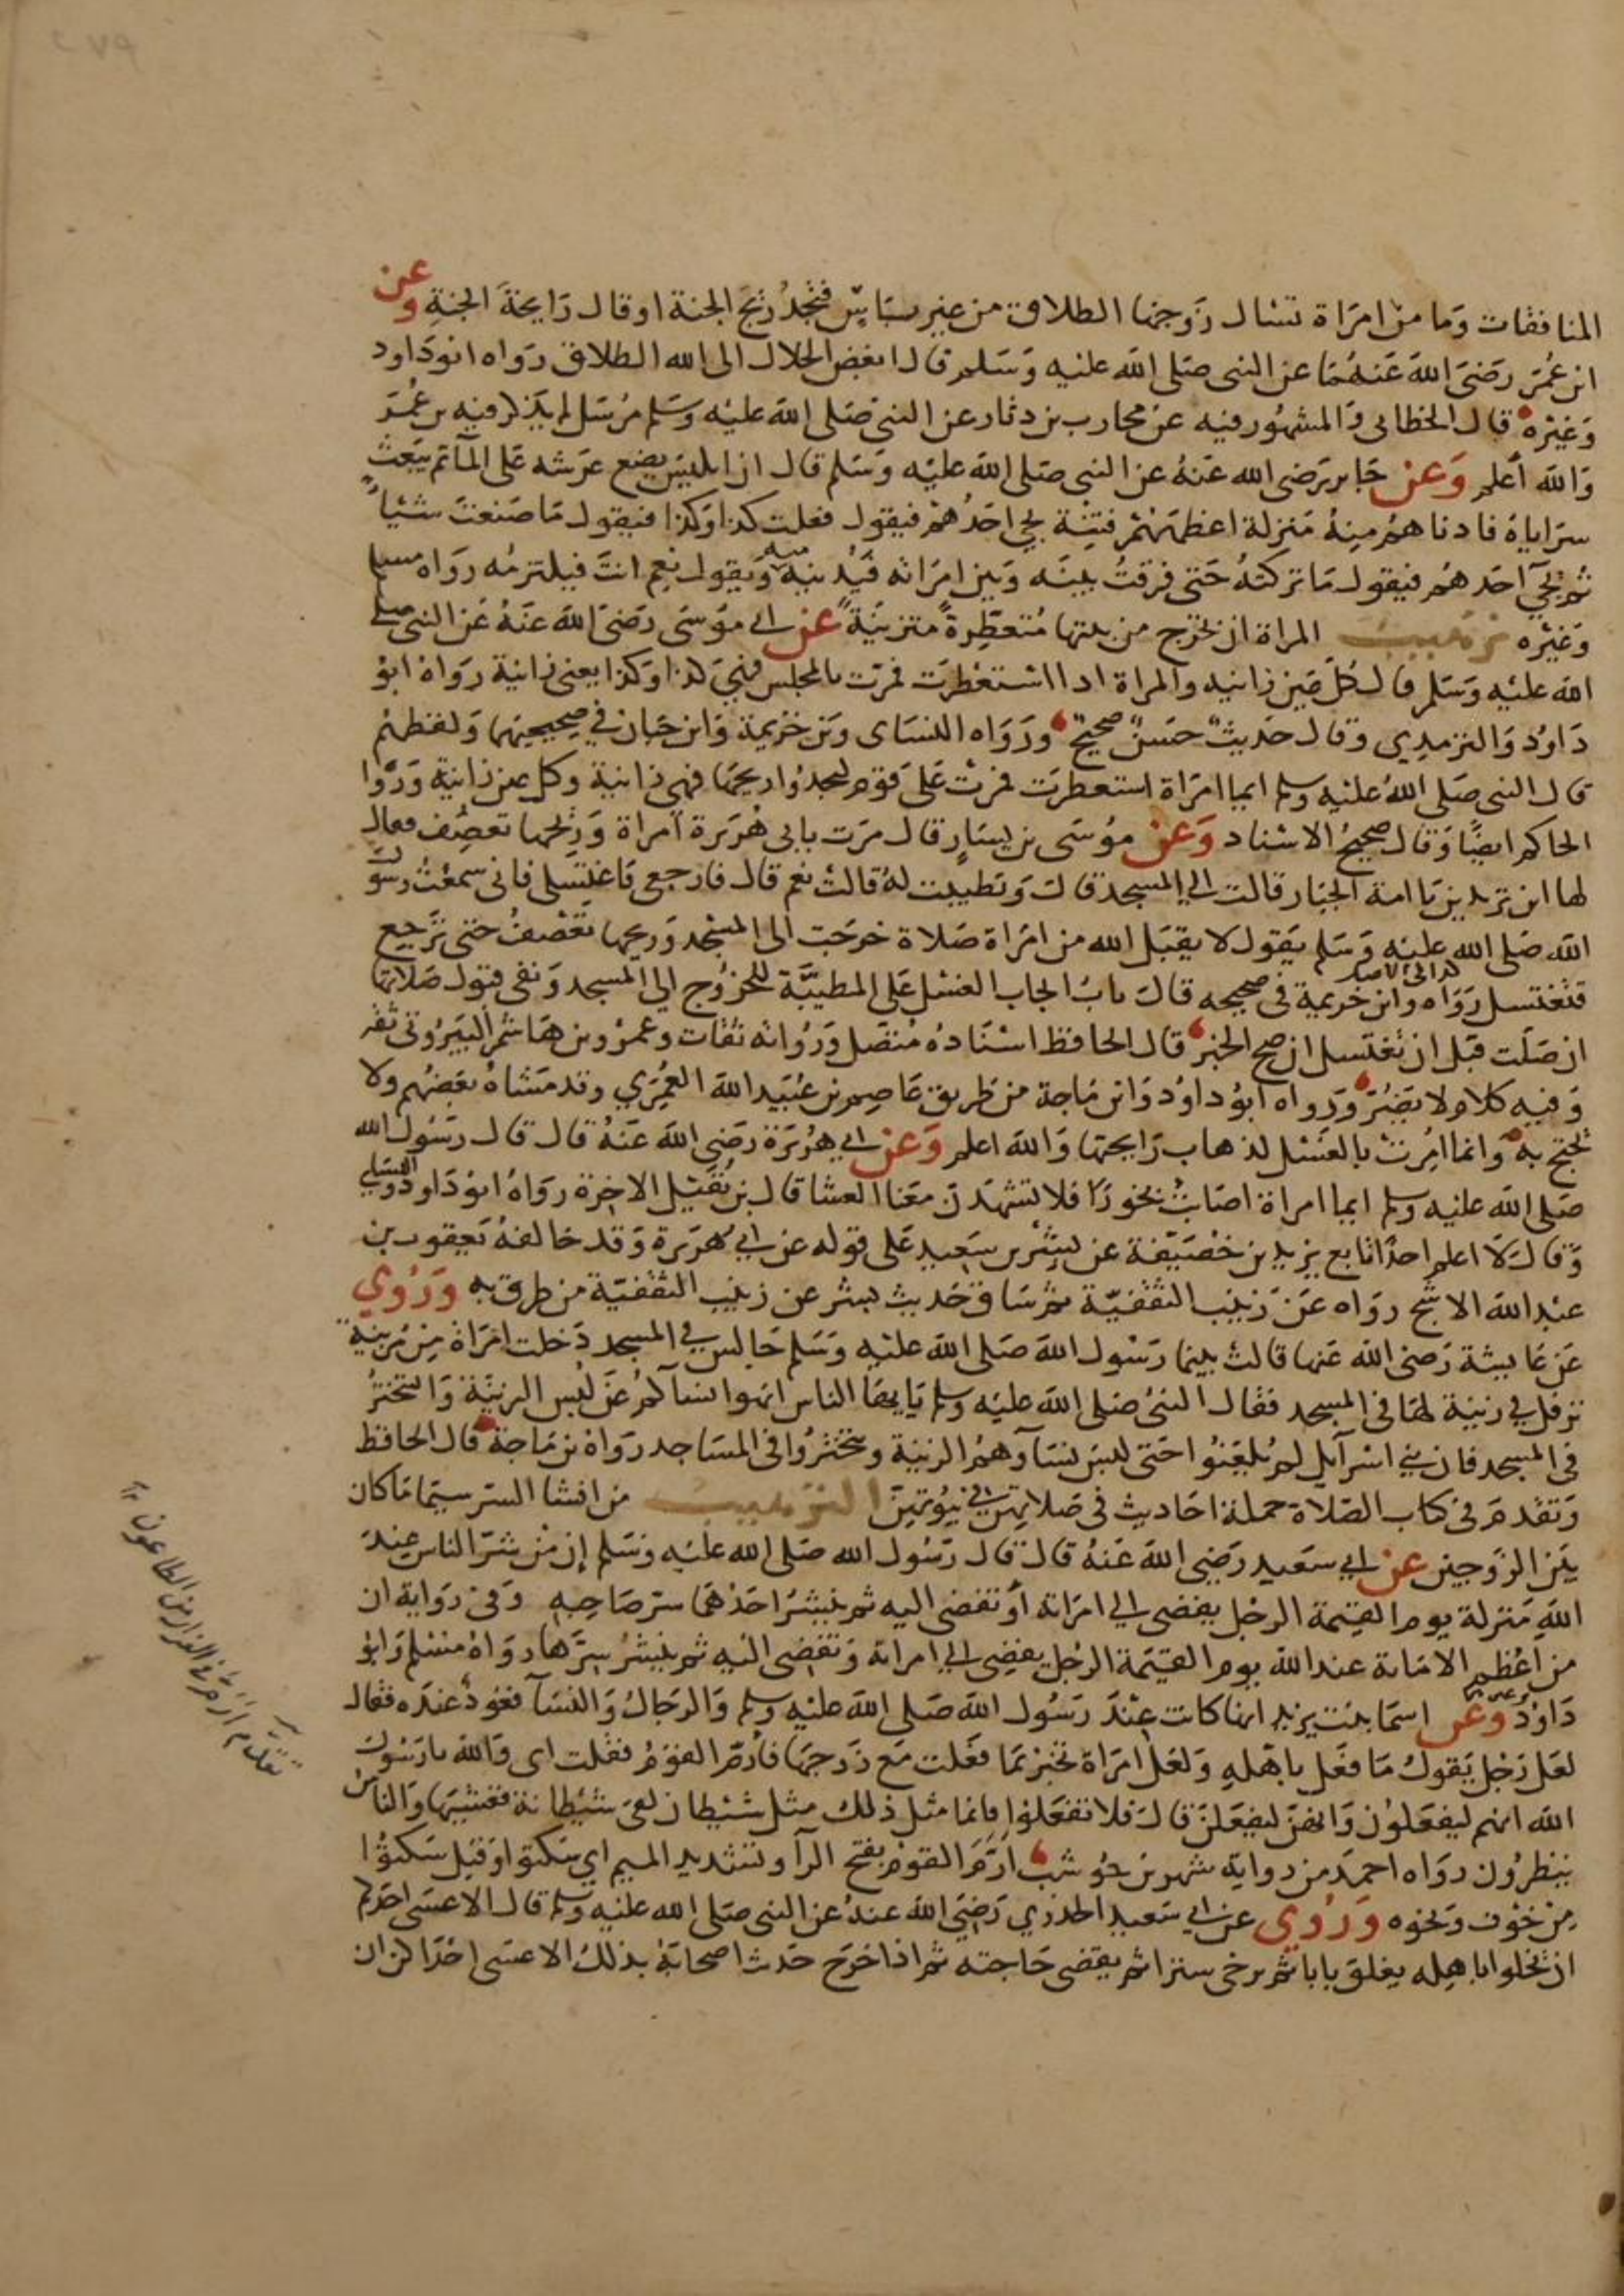 المنافقات وما من امراة تسال زوجها الطلاق من غير باس فتجد ريح الجنة او قال رايحة الجنة وعن
ابن عمر رضى الله عنهما عن النبى صلى الله عليه وسلم قال ابغض الحلال الى الله الطلاق رواه ابو داود
وغيره قال الخطابى والمشهور فيه عن محارب بن دثار عن النبى صلى الله عليه وسلم مرسل لم يذكر فيه بن عمر
والله أعلم وعن جابر رضى الله عنه عن النبى صلى الله عليه وسلم قال ان ابليس يضع عرشه على الماء ثم يبعث
سراياه فادناهم منه منزلة اعظمهم فتنة يجى احدهم فيقول فعلت كذا وكذا فيقول ما صنعت شئيا
ثم يجى آحدهم فيقول ما تركته حتى فرقت بينه وبين امراته فيدنيه منه ويقول نعم انت فيلتزمه رواه مسلم
وغيره ترهيب المراة ان تخرج من بيتها متعطرة متزينة عن ابى موسى رضى الله عنه عن النبى صلى
الله عليه وسلم قال كل عين زانيه والمراة اذا استعطرت فمرت بالمجلس فهى كذا وكذا يعنى زانية رواه ابو
داود والترمذي وقال حديث حسن صحيح ورواه النساى وبن خزيمة وابن حبان في صحيحيهما ولفظهم
قال النبى صلى الله عليه وسلم ايما امراة استعطرت فمرت على قوم ليجدوا ريحها فهى زانية وكل عين زانية ورووا
الحاكم ايضا وقال صحيح الاسناد وعن موسى بن يسار قال مرت بابى هريرة امراة وريحها تعصف فقال
لها اين تريدين يا امة الجبار قالت الى المسجد قال وتطيبت له قالت نعم قال فارجعى فاغتسلى فانى سمعت رسول
الله صلى الله عليه وسلم يقول لا يقبل الله من امراة صلاة خرجت الى المسجد وريحها تعصف حتى ترجع
كذا فى الاصل
فتغتسل رواه وابن خزيمة فى صحيحه قال باب ايجاب الغسل على المطيبة للخروج الى المسجد ونفى قبول صلاتها
ان صلت قبل ان تغتسل ان صح الخبر قال الحافظ اسناده متصل ورواته ثقات وعمرو بن هاشم البيروتى ثقه
وفيه كلام لا يضر ورواه ابو داود وابن ماجة من طريق عاصم بن عبيد الله العمري وقد مشاه بعضهم ولا
يحتج به وانما امرت بالغسل لذهاب رايحتها والله اعلم وعن ابي هريرة رضى الله عنه قال قال رسول الله
صلى الله عليه وسلم ايما امراة اصابت بخورا فلا تشهدن معنا العشا قال بن نفيل الاخرة رواه ابو داود والنساي
وقال لا اعلم احدا تابع يزيد بن خصيفة عن بسر بن سعيد على قوله عن ابي هريرة وقد خالفه يعقوب بن
عبد الله الاشج رواه عن زينب الثقفية ثم ساق حديث بسر عن زينب الثقفية من طرق به وروي
عن عايشة رضى الله عنها قالت بينما رسول الله صلى الله عليه وسلم جالس في المسجد دخلت امراة من مزينة
ترفل في زينة لها فى المسجد فقال النبى صلى الله عليه وسلم يا ايها الناس انهوا نساكم عن لبس الزينة والتبختر
فى المسجد فان بنى اسرآيل لم يلعنوا حتى لبس نسآوهم الزينة وتبختروا فى المساجد رواه بن ماجة قال الحافظ
وتقدم فى كتاب الصلاة جملة احاديث فى صلاتهن في بيوتهن الترهيب من افشا السر سيما ما كان
بين الزوجين عن ابي سعيد رضى الله عنه قال قال رسول الله صلى الله عليه وسلم إن من شر الناس عند
الله منزلة يوم القيمة الرجل يفضى الى امراته أو تفضى اليه ثم ينشر احدهما سر صاحبه وفى رواية ان
من اعظم الامانة عند الله يوم القيمة الرجل يفضى الى امراته وتفضى اليه ثم ينشر سرها رواه مسلم وابو
داود وعن اسما بنت يزيد انها كانت عند رسول الله صلى الله عليه وسلم والرجال والنسآ قعود عنده فقال
لعل رجل يقول ما فعل باهله ولعل امراة تخبر بما فعلت مع زوجها فأرم القوم فقلت اى والله يا رسول
الله انهم ليفعلون وانهن ليفعلن قال فلا تفعلوا فانما مثل ذلك مثل شيطان لقى شيطانة فغشيها والناس
ينظرون رواه احمد من رواية شهر بن حوشب ارم القوم بفتح الرآ وتشديد الميم اي سكتوا وقيل سكتوا
من خوف ونحوه وروي عن ابي سعيد الخدري رضي الله عنه عن النبى صلى الله عليه وسلم قال الا عسى احدكم
ان يخلوا باهله يغلق بابا ثم يرخى سترا ثم يقضى حاجته ثم اذا خرج حدث اصحابه بذلك الا عسى احداكن ان
الفرار من الطاعون
٢٧٩